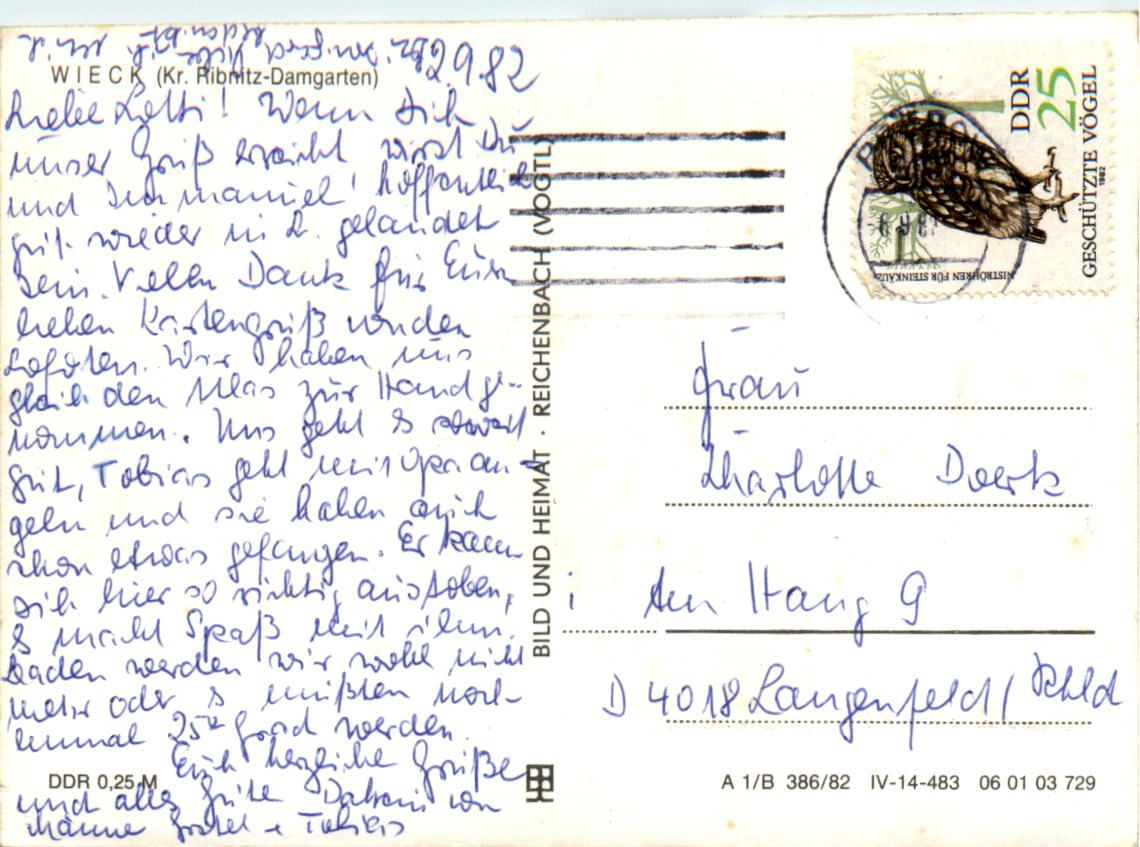 2.9.82
WIECK (Kr. Ribnitz-Damgarten)
Liebe Lotti! Wenn Dich
unser Gruß erreicht wirst Du
und hoffentlich
gut wieder in L. gelandet
sein. Vielen Dank für Euren
lieben Kartengruß von den
Lofoten. Wir haben uns
gleich den Atlas zur Hand ge-
nommen. Uns geht es
gut, Tobias geht mit Opa an-
geln und sie haben auch
schon etwas gefangen. Er kann
sich hier so richtig austoben,
es macht Spaß mit ihm.
Baden werden wir wohl nicht
mehr oder es müßten noch
einmal 25 Grad werden.
Euch herzliche Grüße
und alles Gute Daheim von
Manne Gretel + Tobias
DDR 0,25 M
BILD UND HEIMAT · REICHENBACH (VOGTL)
DDR
25
GESCHÜTZTE VÖGEL
1982
NISTRÖHREN FÜR STEINKÄUZE
Frau
Charlotte Doerks
Am Hang 9
D 4018 Langenfeld / Rhld
A 1/B 386/82 IV-14-483 06 01 03 729